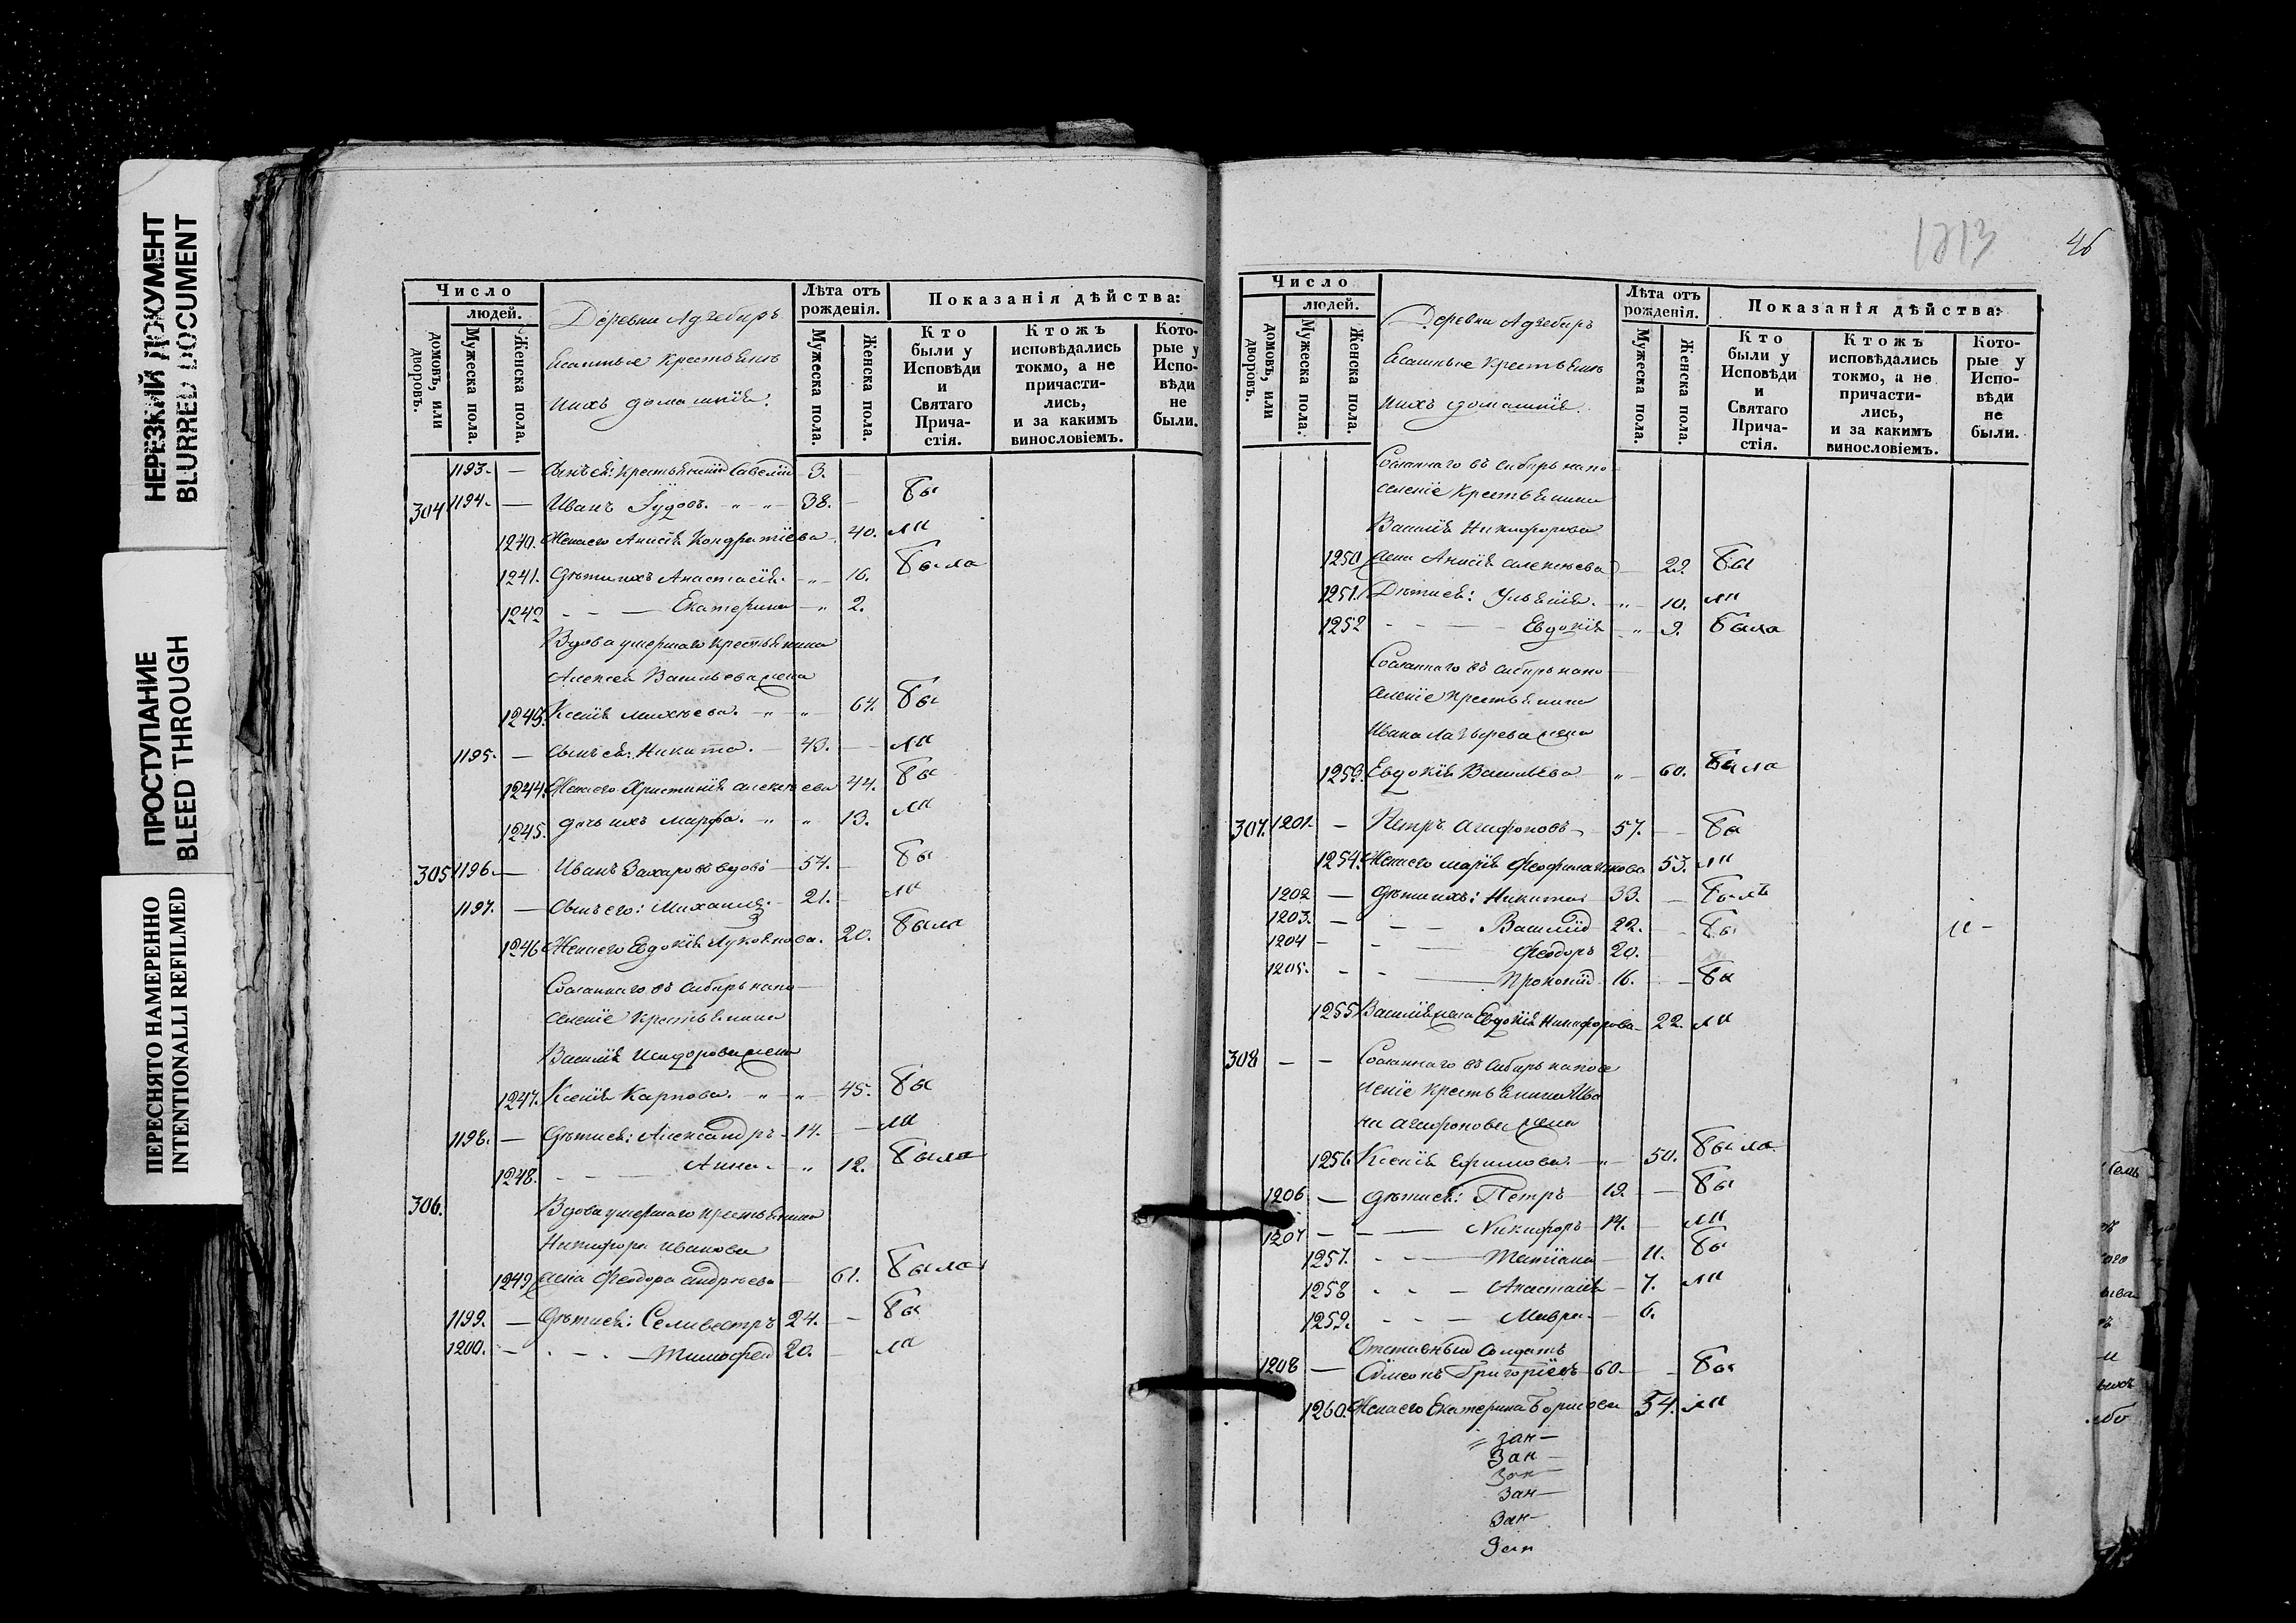 НЕРЕЗКИЙ ДОКУМЕНТ
BLURRED DOCUMENT
ПРОСТУПАНИЕ
BLEED THROUGH
ПЕРЕСНЯТО НАМЕРЕННО
INTENTIONALLI REFILMED
Число
людей.
домовъ, или дворовъ.
Мужеска пола.
Женска пола.
Деревни Адчебиръ
Ясашные крестьяне
и ихъ домашнія.
Лѣта отъ рожденія.
Мужеска пола.
Женска пола.
Показанія дѣйства:
Кто были у Исповѣди и Святаго Прича-стія.
Ктожъ исповѣдались токмо, а не причасти-лись, и за какимъ винословіемъ.
Кото-рые у Испо-вѣди не были.
1193. — Савелій 3.
304 1194. — Иванъ Гудовъ. 38. — бы
1240. Жена его Анисія Кондратіева 40. ли
1241. Дѣти ихъ Анастасія. 16. была
1242 — Екатерина — 2.
Вдова умершаго крестьянина
Алексея Васильева жена
1243. Ксенія Михеева. 67. бы
1195. — Сынъ ея: Никита. — 43. — ли
1244. Жена его Христинія Алексеева 44. бы
1245. дочь ихъ Марфа. 13. ли
305 1196. — Иванъ Захаровъ вдовъ — 54. — бы
1197. — Сынъ его: Михаилъ. — 21. — ли
1246 Жена его Евдокія Лукоянова. 20. была
Сосланнаго въ Сибирь на по-
селеніе крестьянина
Василія Исидорова жена
1247. Ксенія Карпова. 45. бы
1198. — Дѣти ея: Александръ — 14. — ли
1248. — Анна. 12. была
306. Вдова умершаго крестьянина
Никифора Иванова
1249. жена Феодора Андреева — 61. была
1199. — Дѣти ея: Селивестръ 24. — бы
1200. — Тимофей 20. — ли
1213
46
Число
людей.
домовъ, или дворовъ.
Мужеска пола.
Женска пола.
Деревни Адчебиръ
Ясашные крестьяне
и ихъ домашнія.
Лѣта отъ рожденія.
Мужеска пола.
Женска пола.
Показанія дѣйства:
Кто были у Исповѣди и Святаго Прича-стія.
Ктожъ исповѣдались токмо, а не причасти-лись, и за какимъ винословіемъ.
Кото-рые у Испо-вѣди не были.
Сосланнаго въ Сибирь на по-
селеніе крестьянина
Василія Никифорова
1250 жена Анисія Алексеева — 29. бы
1251. Дѣти ея: Ульянія. — 10. ли
1252 — Евдокія — 9. была
Сосланнаго въ Сибирь на по-
селеніе крестьянина
Ивана жена
1253. Евдокія Васильева — 60. была
307. 1201. — Петръ Агафоновъ — 57. — бы
1254. Жена его Марія Феофилактова 53. ли
1202 — Дѣти ихъ: Никита 33. — былъ
1203. — Василій 22. — бы
1204 — Феодоръ 20.
1205. — Прокопій — 16. — бы
1255. Василія жена Евдокія Никифорова — 22. ли
308 — — Сосланнаго въ Сибирь на посе
леніе крестьянина Ива
на Агафонова жена
1256. Ксенія Ефимова. — 50. была
1206 — Дѣти ея: Петръ — 19. — бы
1207 — Никифоръ — 14. — ли
1257. — Татіана — 11. бы
1258 — Анастасія — 7. ли
1259. — Мавра. — 6.
Отставный солдатъ
1208 — Симеонъ Григоріевъ — 60. — бы
1260. Жена его Екатерина Борисова 54. ли
Зан—
Зан—
Зан—
Зан—
Зан—
Зан